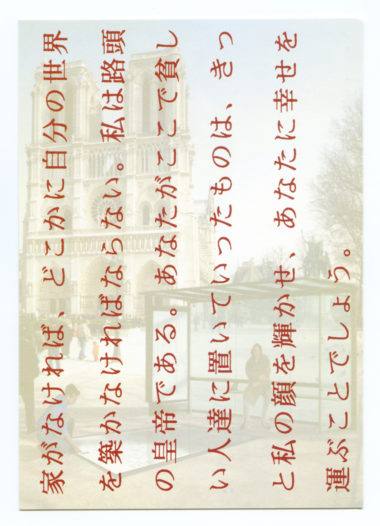 家がなければ、どこかに自分の世界
を築かなければならない。私は路頭
の皇帝である。あなたがここで貧し
い人達に置いていったものは、きっ
と私の顔を輝かせ、あなたに幸せを
運ぶことでしょう。